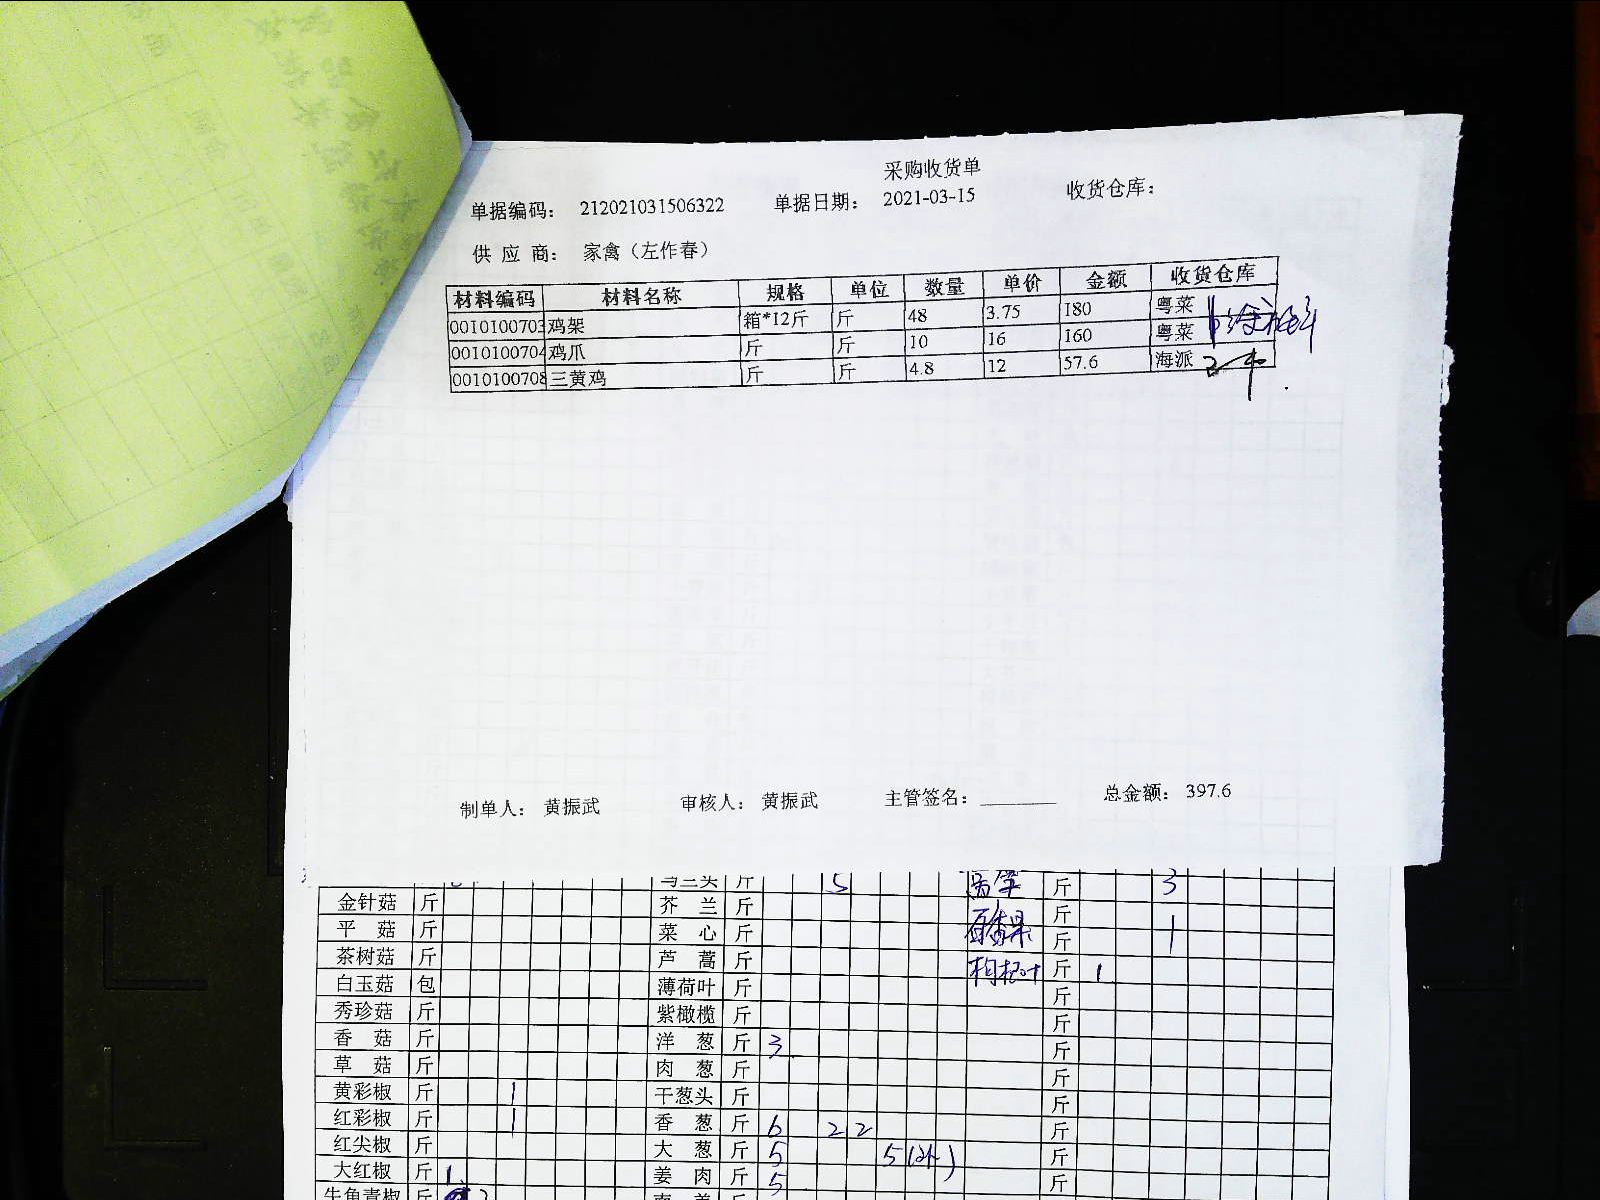 采购收货单
单据编码： 212021031506322 单据日期： 2021-03-15 收货仓库：
供 应 商： 家禽（左作春）
材料编码 材料名称 规格 单位 数量 单价 金额 收货仓库
0010100703 鸡架 箱*12斤 斤 48 3.75 180 粤菜
0010100704 鸡爪 斤 斤 10 16 160 粤菜
0010100708 三黄鸡 斤 斤 4.8 12 57.6 海派
制单人： 黄振武 审核人： 黄振武 主管签名： 总金额： 397.6
马兰头 斤 5 莴笋 斤 3
金针菇 斤 芥 兰 斤 斤
平 菇 斤 菜 心 斤 百香果 斤 1
茶树菇 斤 芦 蒿 斤 枸杞叶 斤 1
白玉菇 包 薄荷叶 斤 斤
秀珍菇 斤 紫橄榄 斤 斤
香 菇 斤 洋 葱 斤 3 斤
草 菇 斤 肉 葱 斤 斤
黄彩椒 斤 1 干葱头 斤 斤
红彩椒 斤 1 香 葱 斤 6 2 2 斤
红尖椒 斤 大 葱 斤 5 5 斤
大红椒 斤 1 姜 肉 斤 5 斤
牛角青椒 斤